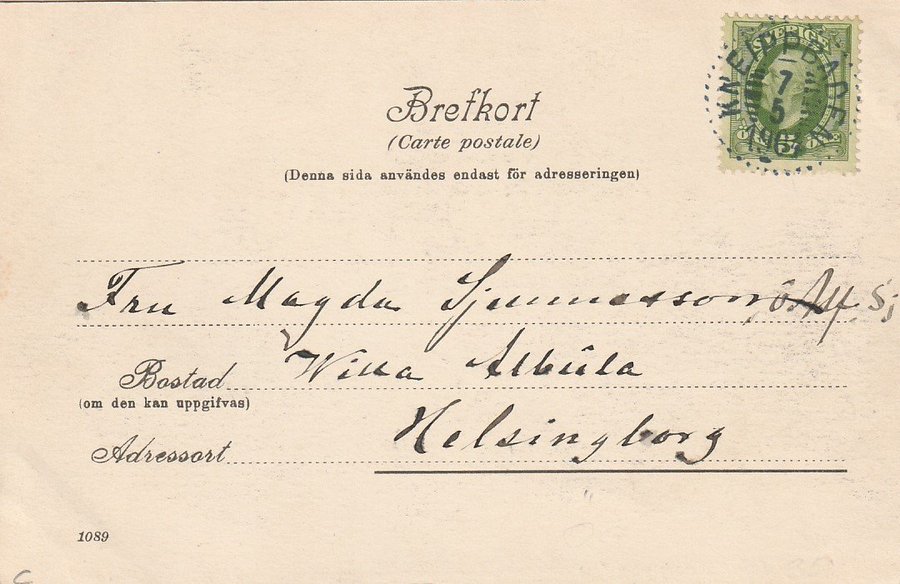 SVERIGE
KNEIPPBADEN
7
5
190
Brefkort
(Carte postale)
(Denna sida användes endast för adresseringen)
Fru Magda Sjunnesson
Bostad Willa Albûla
(om den kan uppgifvas)
Adressort Helsingborg
1089